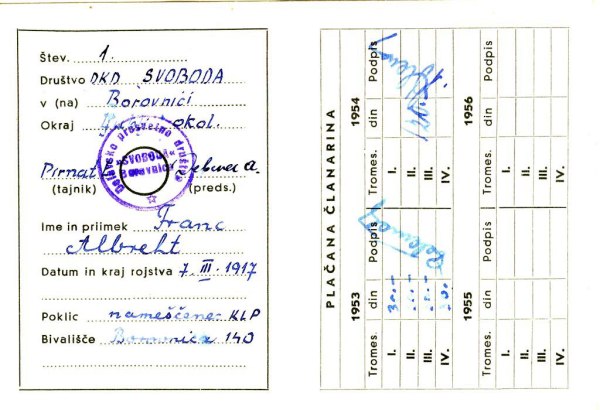 Štev. 1.
Društvo DKD SVOBODA
v (na) Borovnići
Okraj okol.
Delavsko prosvetno društvo
"SVOBODA"
Borovnica
Pirnat
(tajnik) (preds.)
Ime in priimek Franc
Albreht
Datum in kraj rojstva 7. III. 1917
Poklic nameščenec KLP
Bivališče Borovnica 140
PLAČANA ČLANARINA
1953
Tromes. din Podpis
I. 30.-
II.
III.
IV.
1954
Tromes. din Podpis
I.
II.
III.
IV.
1955
Tromes. din Podpis
I.
II.
III.
IV.
1956
Tromes. din Podpis
I.
II.
III.
IV.